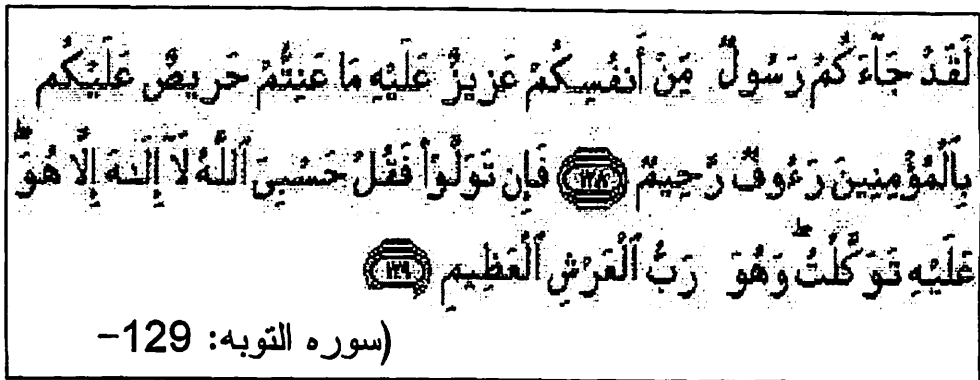 لَقَدْ جَآءَكُمْ رَسُولٌ مِّنْ أَنفُسِكُمْ عَزِيزٌ عَلَيْهِ مَا عَنِتُّمْ حَرِيصٌ عَلَيْكُم
بِٱلْمُؤْمِنِينَ رَءُوفٌ رَّحِيمٌ ١٢٨ فَإِن تَوَلَّوْا۟ فَقُلْ حَسْبِىَ ٱللَّهُ لَآ إِلَـٰهَ إِلَّا هُوَ ۖ
عَلَيْهِ تَوَكَّلْتُ ۖ وَهُوَ رَبُّ ٱلْعَرْشِ ٱلْعَظِيمِ ١٢٩
(سوره التوبه: 129-